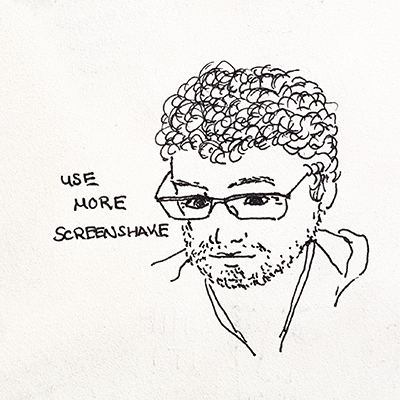 USE
MORE
SCREENSHAKE